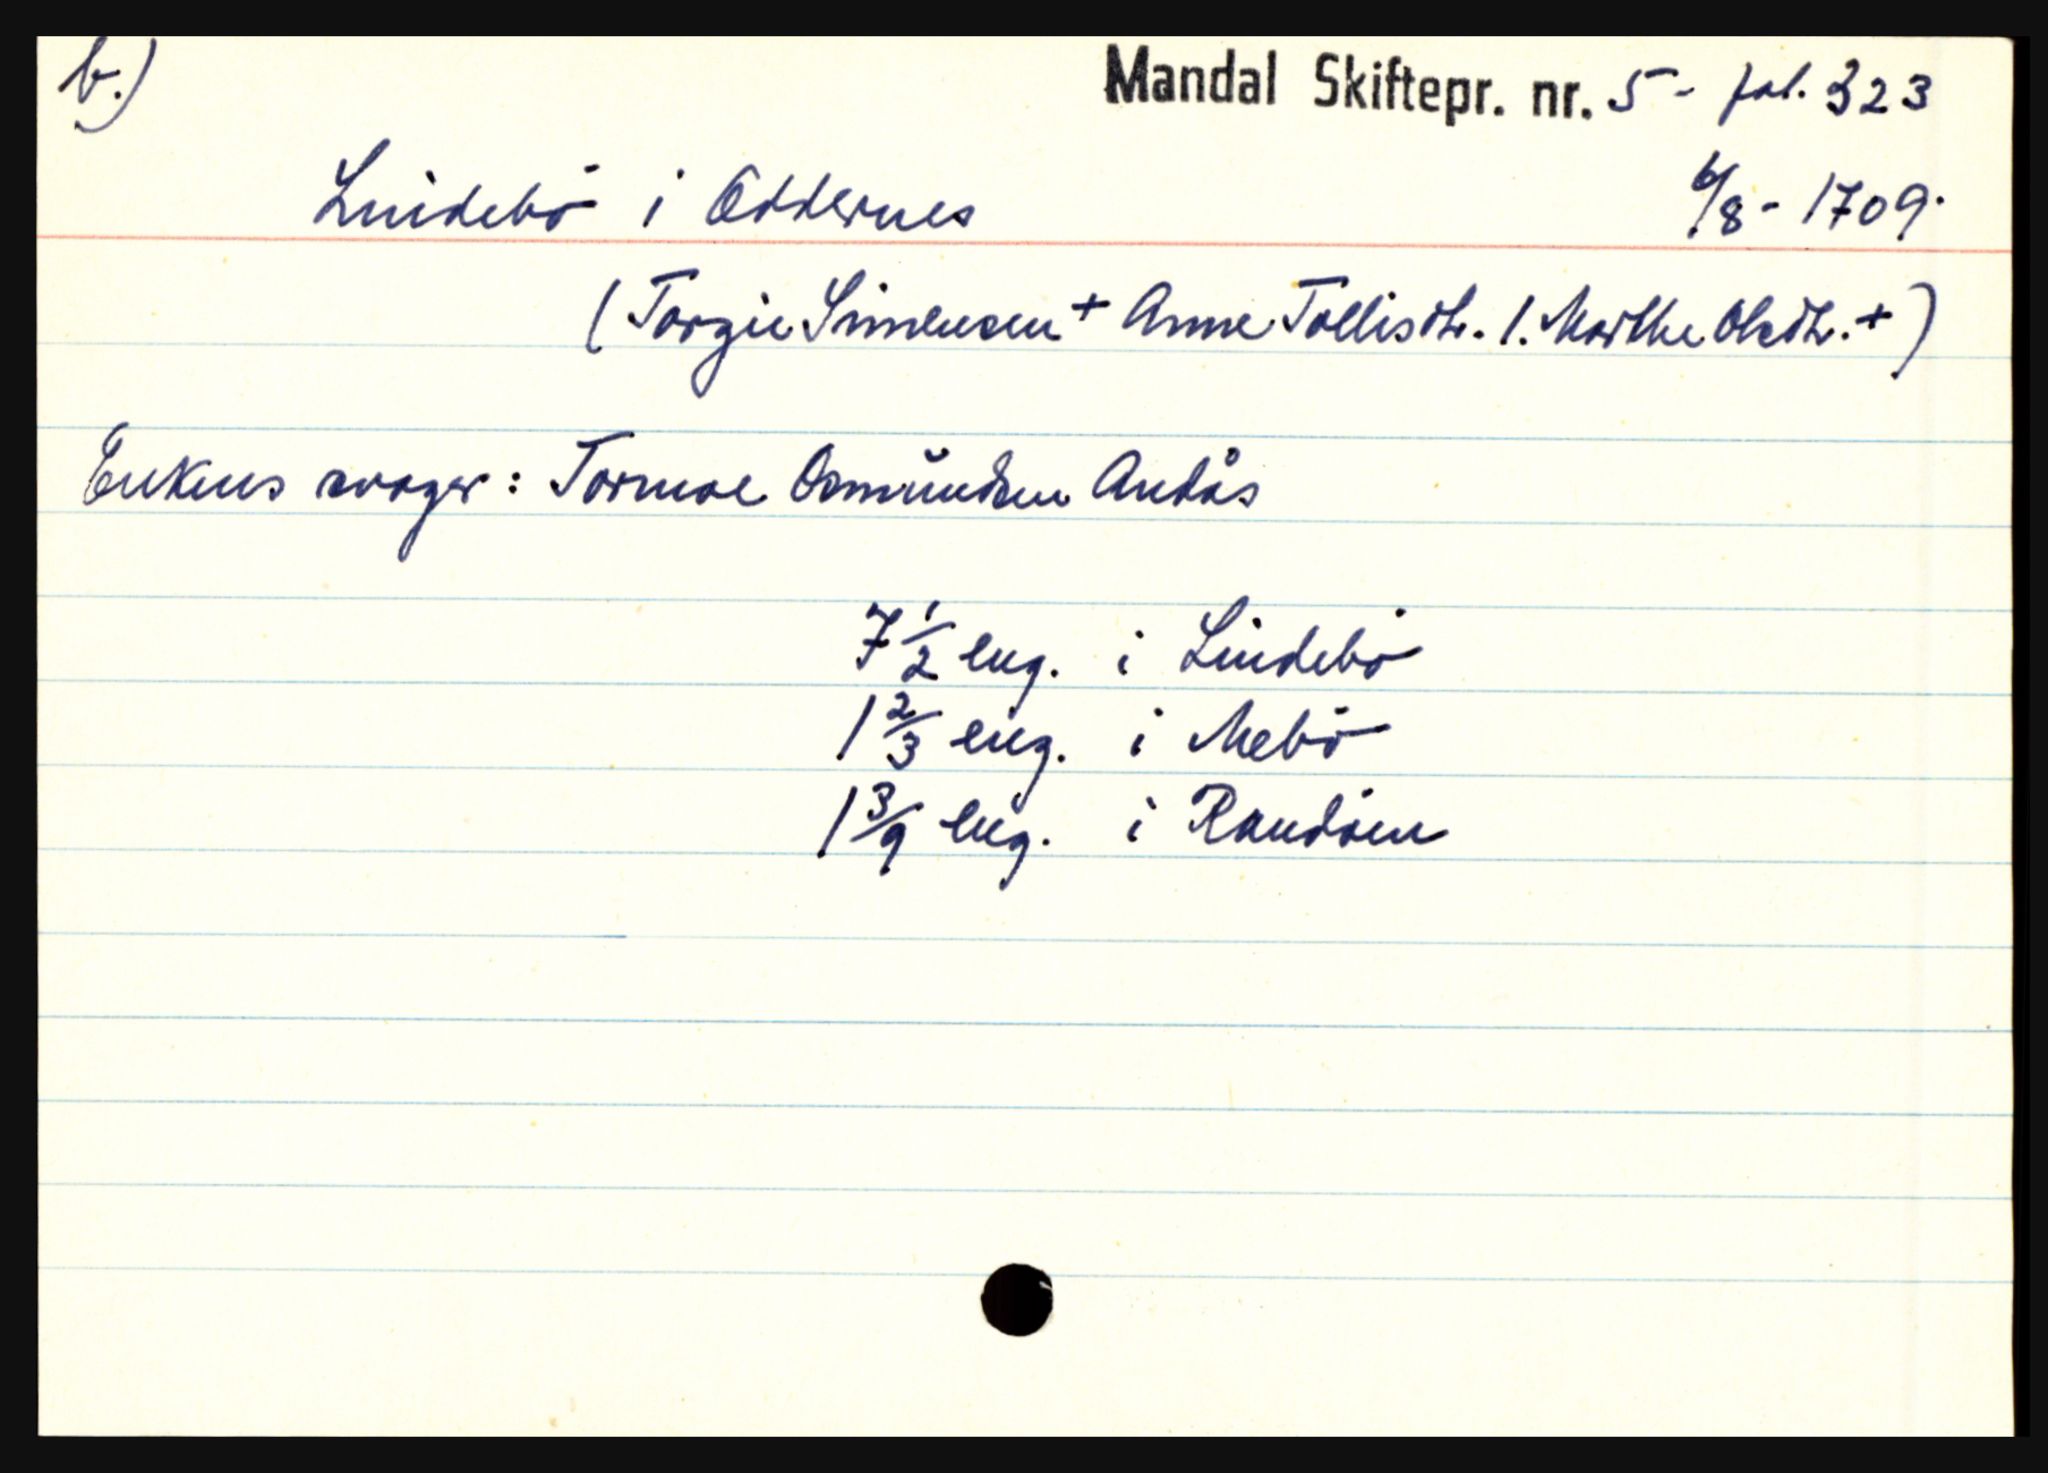 b.)
Mandal Skiftepr. nr. 5 - fol. 323
Lindebö i Oddernes 6/8 - 1709.
(Torgie Simensen + Anne Tollisdtr. 1. Marthe Olsdtr. +)
Enkens svoger: Tormoe Osmundsen Andås
7 1/2 eng. i Lindebö
1 2/3 eng. i Mebö
1 3/9 eng. i Randöen